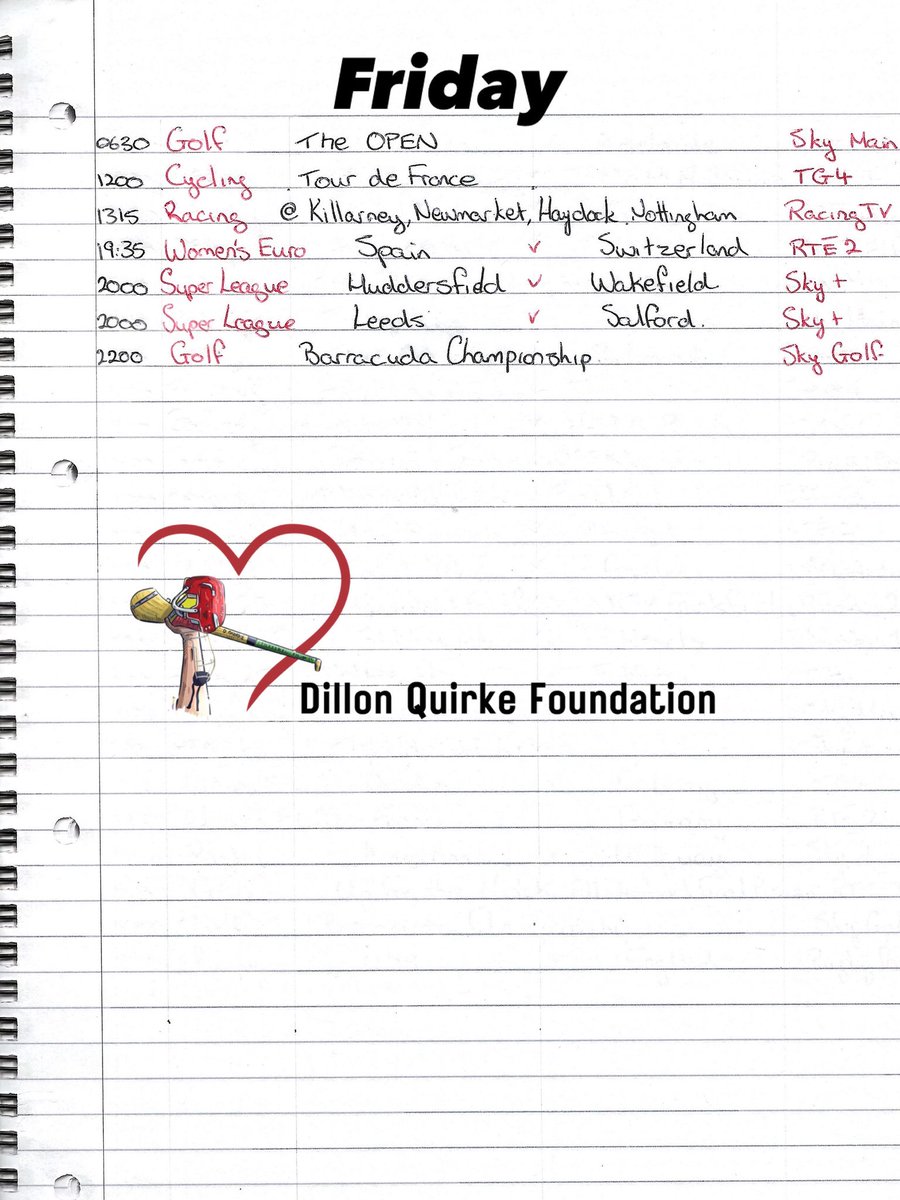 Friday
0630 Golf The OPEN Sky Main
1200 Cycling Tour de France TG4
1315 Racing @ Killarney, Newmarket, Haydock, Nottingham Racing TV
19:35 Women's Euro Spain v Switzerland RTÉ 2
2000 Super League Huddersfidd v Wakefield Sky +
2000 Super League Leeds v Salford. Sky +
2200 Golf Barracuda Championship Sky Golf
Dillon Quirke Foundation